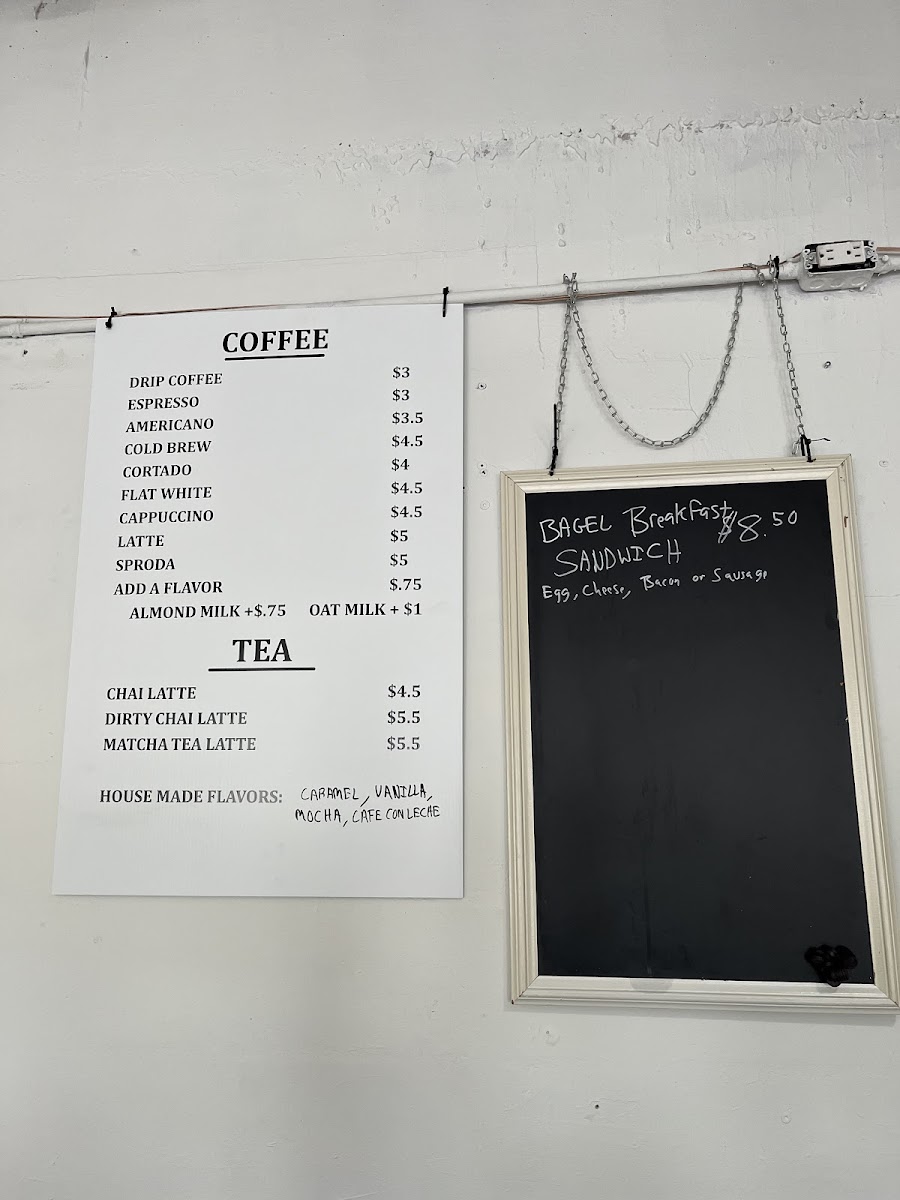 COFFEE
DRIP COFFEE $3
ESPRESSO $3
AMERICANO $3.5
COLD BREW $4.5
CORTADO $4
FLAT WHITE $4.5
CAPPUCCINO $4.5
LATTE $5
SPRODA $5
ADD A FLAVOR $.75
ALMOND MILK +$.75 OAT MILK + $1
TEA
CHAI LATTE $4.5
DIRTY CHAI LATTE $5.5
MATCHA TEA LATTE $5.5
HOUSE MADE FLAVORS: CARAMEL, VANILLA,
MOCHA, CAFE CON LECHE
BAGEL Breakfast $8.50
SANDWICH
Egg, Cheese, Bacon or Sausage